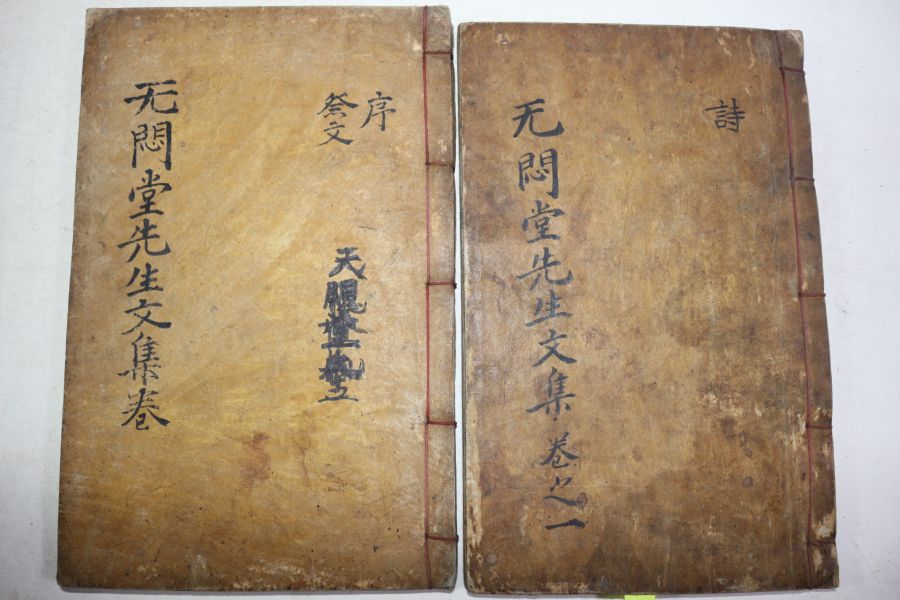 詩
无悶堂先生文集卷之一
序
祭文
天
无悶堂先生文集卷